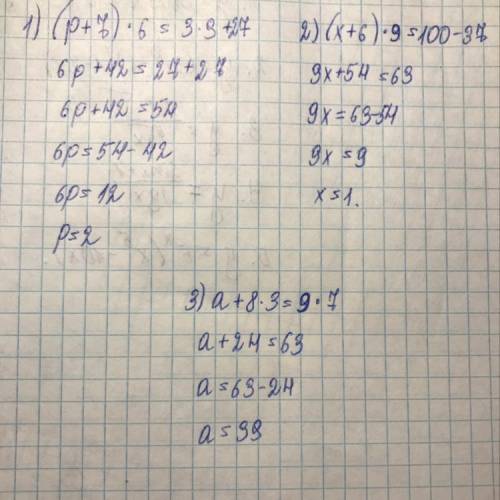 1) (p+7)·6=3·9+27
6p+42=27+27
6p+42=54
6p=54-42
6p=12
p=2
2) (x+6)·9=100-37
9x+54=63
9x=63-54
9x=9
x=1.
3) a+8·3=9·7
a+24=63
a=63-24
a=39